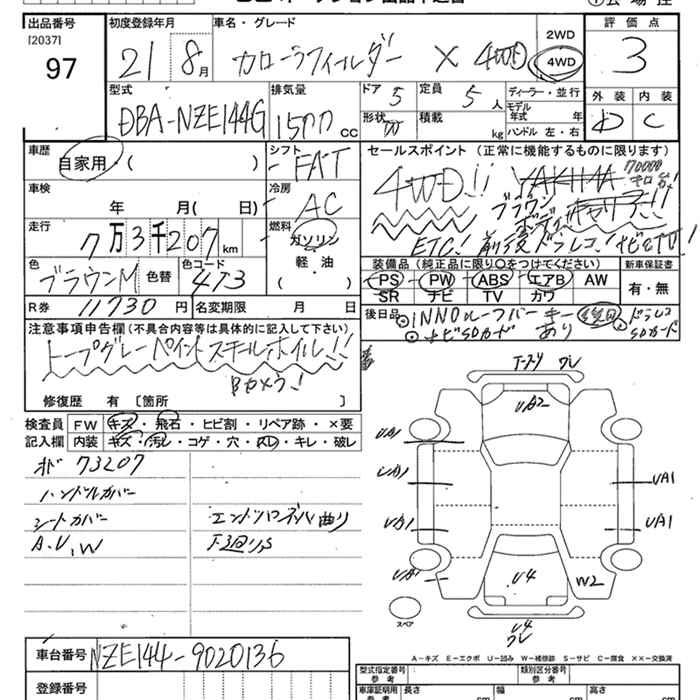 出品番号
[2037]
97
初度登録年月
21 8月
車名・グレード
カローラフィールダー X 4WD
2WD
4WD
評価点
3
型式
DBA-NZE144G
排気量
1500 cc
ドア 5
形状 W
定員 5 人
積載 kg
ディーラー・並行
モデル年式 年
ハンドル 左・右
外装 内装
D C
車歴
自家用・( )
車検
年 月( 日)
走行
7万3千207km
色
ブラウンM
色替
色コード
4T3
シフト
FAT
冷房
AC
燃料
ガソリン
軽・油
( )
R券 11730円
名変期限 月 日
セールスポイント (正常に機能するものに限ります)
4WD!! YAKIMA 70000キロ台!
ブラウン
ボディ
ETC! 前後ドラレコ! ナビとTV!
装備品 (純正品に限り○をつけてください)
PS PW ABS エアB AW
SR ナビ TV カワ
新車保証書
有・無
後日品
INNOルーフバー キー あり
ナビSDカード
ドラレコ
SDカード
注意事項申告欄 (不具合内容等は具体的に記入して下さい)
トープグレーペイントスチールホイル!!
Bカメラ!
修復歴 有 〔箇所 〕
検査員 FW キズ・飛石・ヒビ割・リペア跡・×要
記入欄 内装 キズ・汚レ・コゲ・穴・スレ・キレ・破レ
オド 73207
ハンドルカバー
シートカバー
A.U.W
エンドパネル曲り
下廻りS
テープ ワレ
UA2
UA1
UA1
UA1
UA1
UA1
UA1
U4
W2
U4
ワレ
スペア
A-キズ E-エクボ U-凹み W-補修跡 S-サビ C-腐食 ××-交換済
車台番号 NZE144-9020136
登録番号
型式指定番号
参考
類別区分番号
参考
車庫証明用
参考
長さ cm
幅 cm
高さ cm